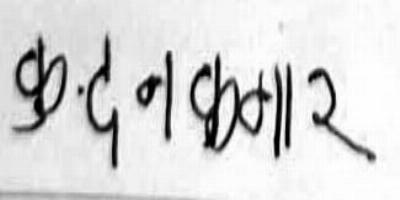 कुंदन कुमार